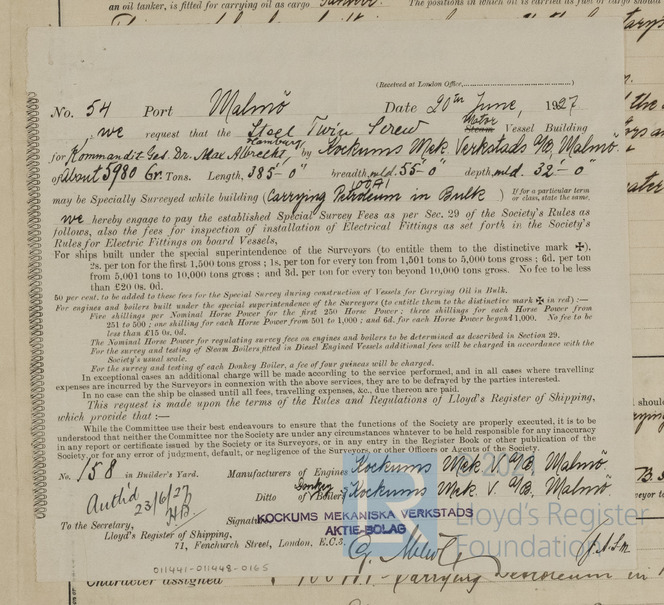 an oil tanker, is fitted for carrying oil as cargo
The positions in which oil is carried as fuel or cargo should
(Received at London Office,..............................)
No. 54 Port Malmö Date 20th June, 1927
we request that the Steel Twin Screw Motor Steam Vessel Building
for Kommandit Ges. Dr. Max Albrecht, Hamburg by Kockums Mek. Verkstads A/B, Malmö.
of About 5980 Gr. Tons. Length, 385'-0" breadth, mld. 55'-0" depth, mld. 32'-0"
may be Specially Surveyed while building (100A1 Carrying Petroleum in Bulk) If for a particular term or class, state the same.
we hereby engage to pay the established Special Survey Fees as per Sec. 29 of the Society's Rules as
follows, also the fees for inspection of installation of Electrical Fittings as set forth in the Society's
Rules for Electric Fittings on board Vessels,
For ships built under the special superintendence of the Surveyors (to entitle them to the distinctive mark ✠).
2s. per ton for the first 1,500 tons gross; 1s. per ton for every ton from 1,501 tons to 5,000 tons gross; 6d. per ton
from 5,001 tons to 10,000 tons gross; and 3d. per ton for every ton beyond 10,000 tons gross. No fee to be less
than £20 0s. 0d.
50 per cent. to be added to these fees for the Special Survey during construction of Vessels for Carrying Oil in Bulk.
For engines and boilers built under the special superintendence of the Surveyors (to entitle them to the distinctive mark ✠ in red) :—
Five shillings per Nominal Horse Power for the first 250 Horse Power; three shillings for each Horse Power from
251 to 500; one shilling for each Horse Power from 501 to 1,000; and 6d. for each Horse Power beyond 1,000. No fee to be
less than £15 0s. 0d.
The Nominal Horse Power for regulating survey fees on engines and boilers to be determined as described in Section 29.
For the survey and testing of Steam Boilers fitted in Diesel Engined Vessels additional fees will be charged in accordance with the
Society's usual scale.
For the survey and testing of each Donkey Boiler, a fee of four guineas will be charged.
In exceptional cases an additional charge will be made according to the service performed, and in all cases where travelling
expenses are incurred by the Surveyors in connexion with the above services, they are to be defrayed by the parties interested.
In no case can the ship be classed until all fees, travelling expenses, &c., due thereon are paid.
This request is made upon the terms of the Rules and Regulations of Lloyd's Register of Shipping,
which provide that :—
While the Committee use their best endeavours to ensure that the functions of the Society are properly executed, it is to be
understood that neither the Committee nor the Society are under any circumstances whatever to be held responsible for any inaccuracy
in any report or certificate issued by the Society or its Surveyors, or in any entry in the Register Book or other publication of the
Society, or for any error of judgment, default, or negligence of the Surveyors, or other Officers or Agents of the Society.
No. 158 in Builder's Yard. Manufacturers of Engines Kockums Mek. V. A/B, Malmö
Ditto of Donkey Boilers Kockums Mek. V. A/B, Malmö
Auth'd 23/6/27 H.B.
KOCKUMS MEKANISKA VERKSTADS
AKTIE-BOLAG
To the Secretary,
Lloyd's Register of Shipping,
71, Fenchurch Street, London, E.C.3.
© 2021
Lloyd's Register
Foundation
011441-011448-0165
Character assigned 100A1. Carrying Petroleum in